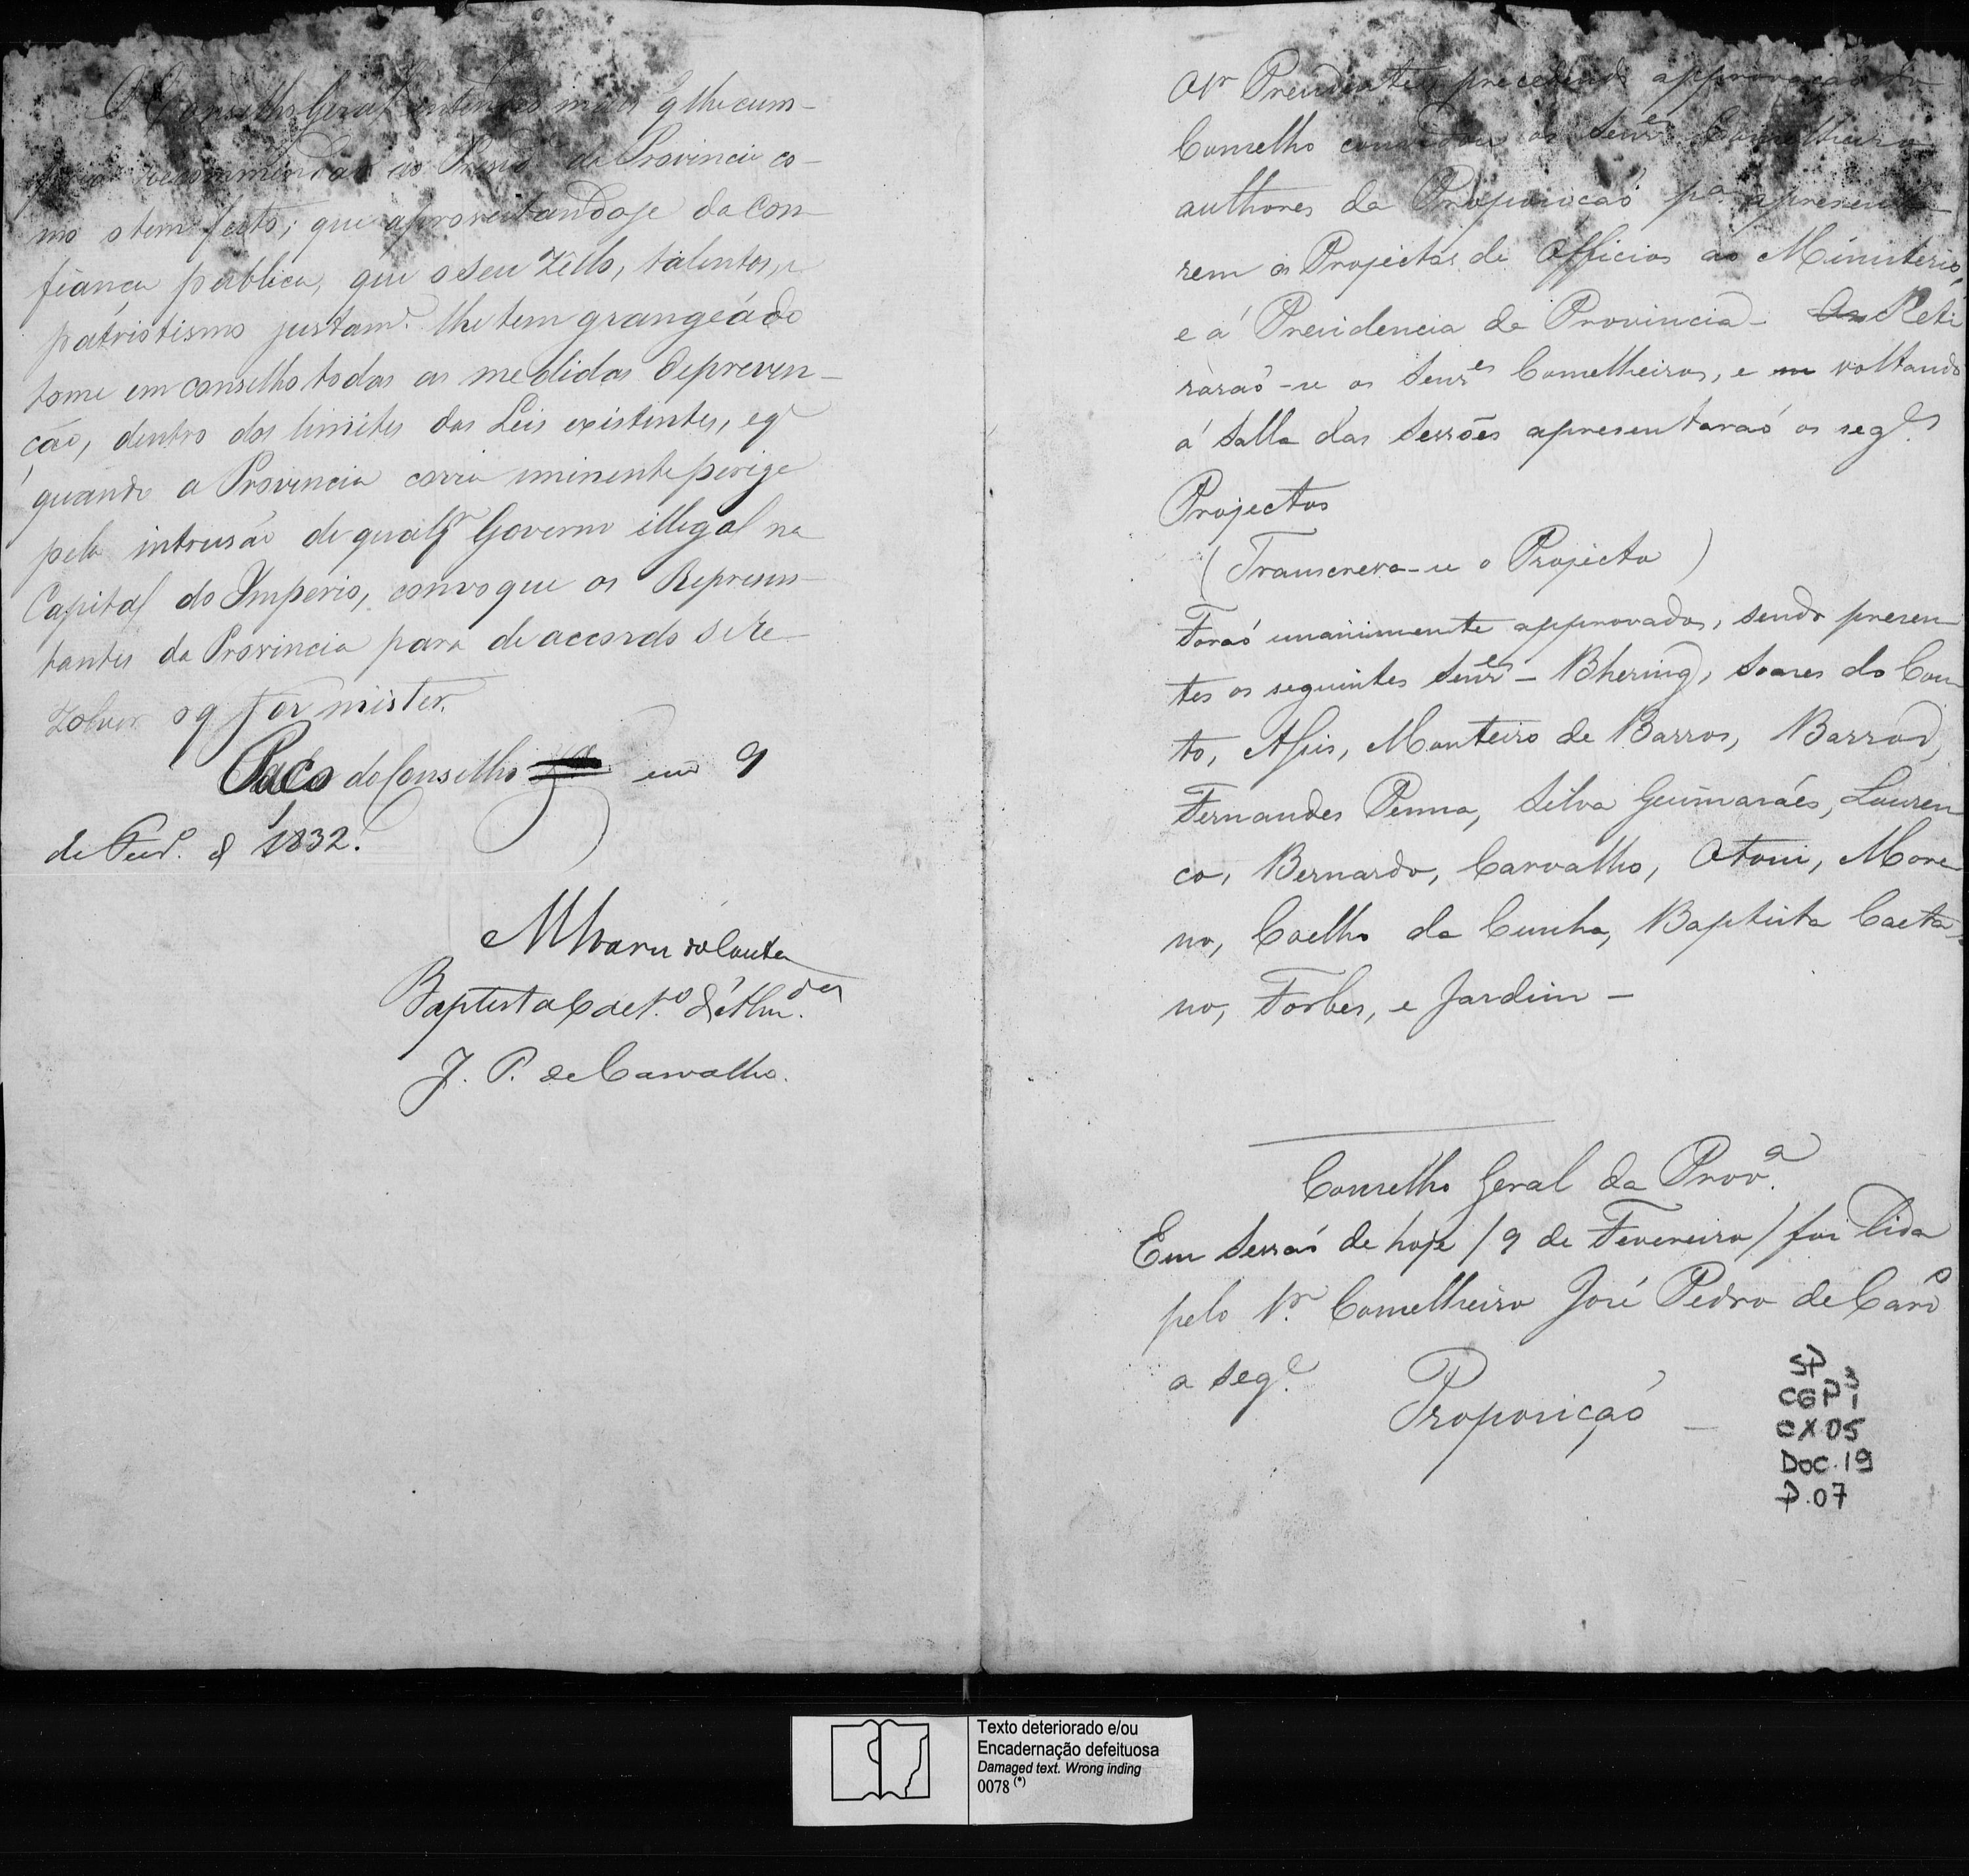 O Conselho Geral entendeo mais q lhe cum-
recommendar ao Presid.e da Provincia co-
mo o tem feito; que aproveitandose da con-
fiança publica, que o seu Zello, talentos, e
patriotismo justam.e lhe tem grangeádo
tome em conselho todas as medidas de preven-
ção, dentro dos limites das Leis existentes, e q
quando a Provincia corra iminente perigo
pela intrusão de qualqr Governo illegal na
Capital do Imperio, convoque os Represen-
tantes da Provincia para de accordo se re-
zolver o q for mister.
Páço do Conselho em 9
de Fev.o d 1832.
Baptista Caet.o d'Alm.da
J. P. de Carvalho.
O Sr Presidente, precedendo approvação do
Conselho convidou os Senres Conselheiros
authores da Proposicaõ pa apresenta-
rem os Projectos de Officios ao Ministerio,
e á Presidencia da Provincia - Reti
raraõ-se os Senres Conselheiros, e voltando
á Salla das Sessões apresentaraõ os seges
Projectos
(Transcreva-se o Projecto)
Foraõ unanimemente approvados, sendo presen
tes os seguintes Senres - Bhering, Soares do Cou
to, Assis, Monteiro de Barros, Barros,
Fernandes Penna, Silva Guimarães, Louren
co, Bernardo, Carvalho, Otoni, More
no, Coelho da Cunha, Baptista Caeta
no, Forbes, e Jardim -
Conselho Geral da Prov.a
Em Sessaõ de hoje /9 de Fevereiro/ foi lida
pelo Sr. Conselheiro José Pedro de Caro
a seg.e
Proposiçaõ -
SP
CGP 3
1
CX.05
DOC.19
P.07
Texto deteriorado e/ou
Encadernação defeituosa
Damaged text. Wrong inding
0078 (*)